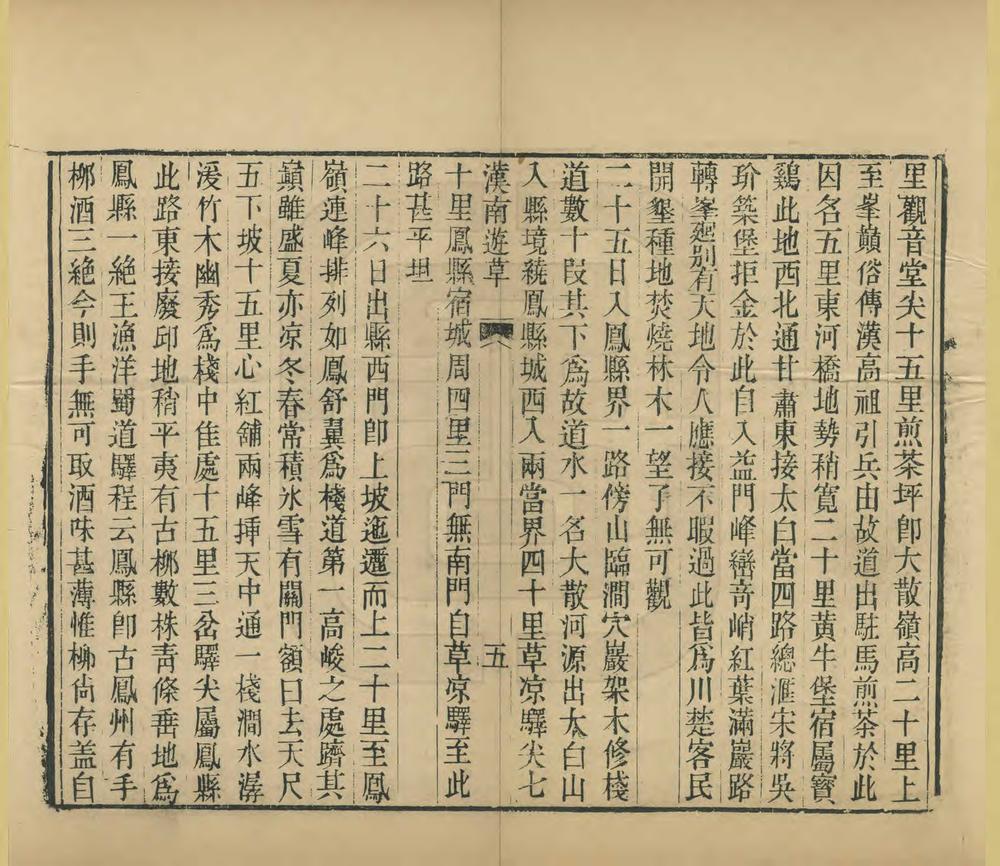 里觀音堂尖十五里煎茶坪卽大散嶺高二十里上
至峯巔俗傳漢高祖引兵由故道出駐馬煎茶於此
因名五里東河橋地勢稍寬二十里黃牛堡宿屬寶
鷄此地西北通甘肅東接太白當四路總滙宋將吳
玠築堡拒金於此自入益門峰巒奇峭紅葉滿巖路
轉峯廻別有天地令人應接不暇過此皆爲川楚客民
開墾種地焚燒林木一望了無可觀
二十五日入鳳縣界一路傍山臨澗穴巖架木修棧
道數十段其下爲故道水一名大散河源出太白山
入縣境繞鳳縣城西入兩當界四十里草凉驛尖七
漢南遊草
五
十里鳳縣宿城周四里三門無南門自草凉驛至此
路甚平坦
二十六日出縣西門卽上坡迤邐而上二十里至鳳
嶺連峰排列如鳳舒翼爲棧道第一高峻之處躋其
巔雖盛夏亦凉冬春常積氷雪有關門額曰去天尺
五下坡十五里心紅舖兩峰揷天中通一棧澗水潺
湲竹木幽秀爲棧中佳處十五里三岔驛尖屬鳳縣
此路東接廢邱地稍平夷有古柳數株靑條垂地爲
鳳縣一絕王漁洋蜀道驛程云鳳縣卽古鳳州有手
柳酒三絕今則手無可取酒味甚薄惟柳尙存盖自